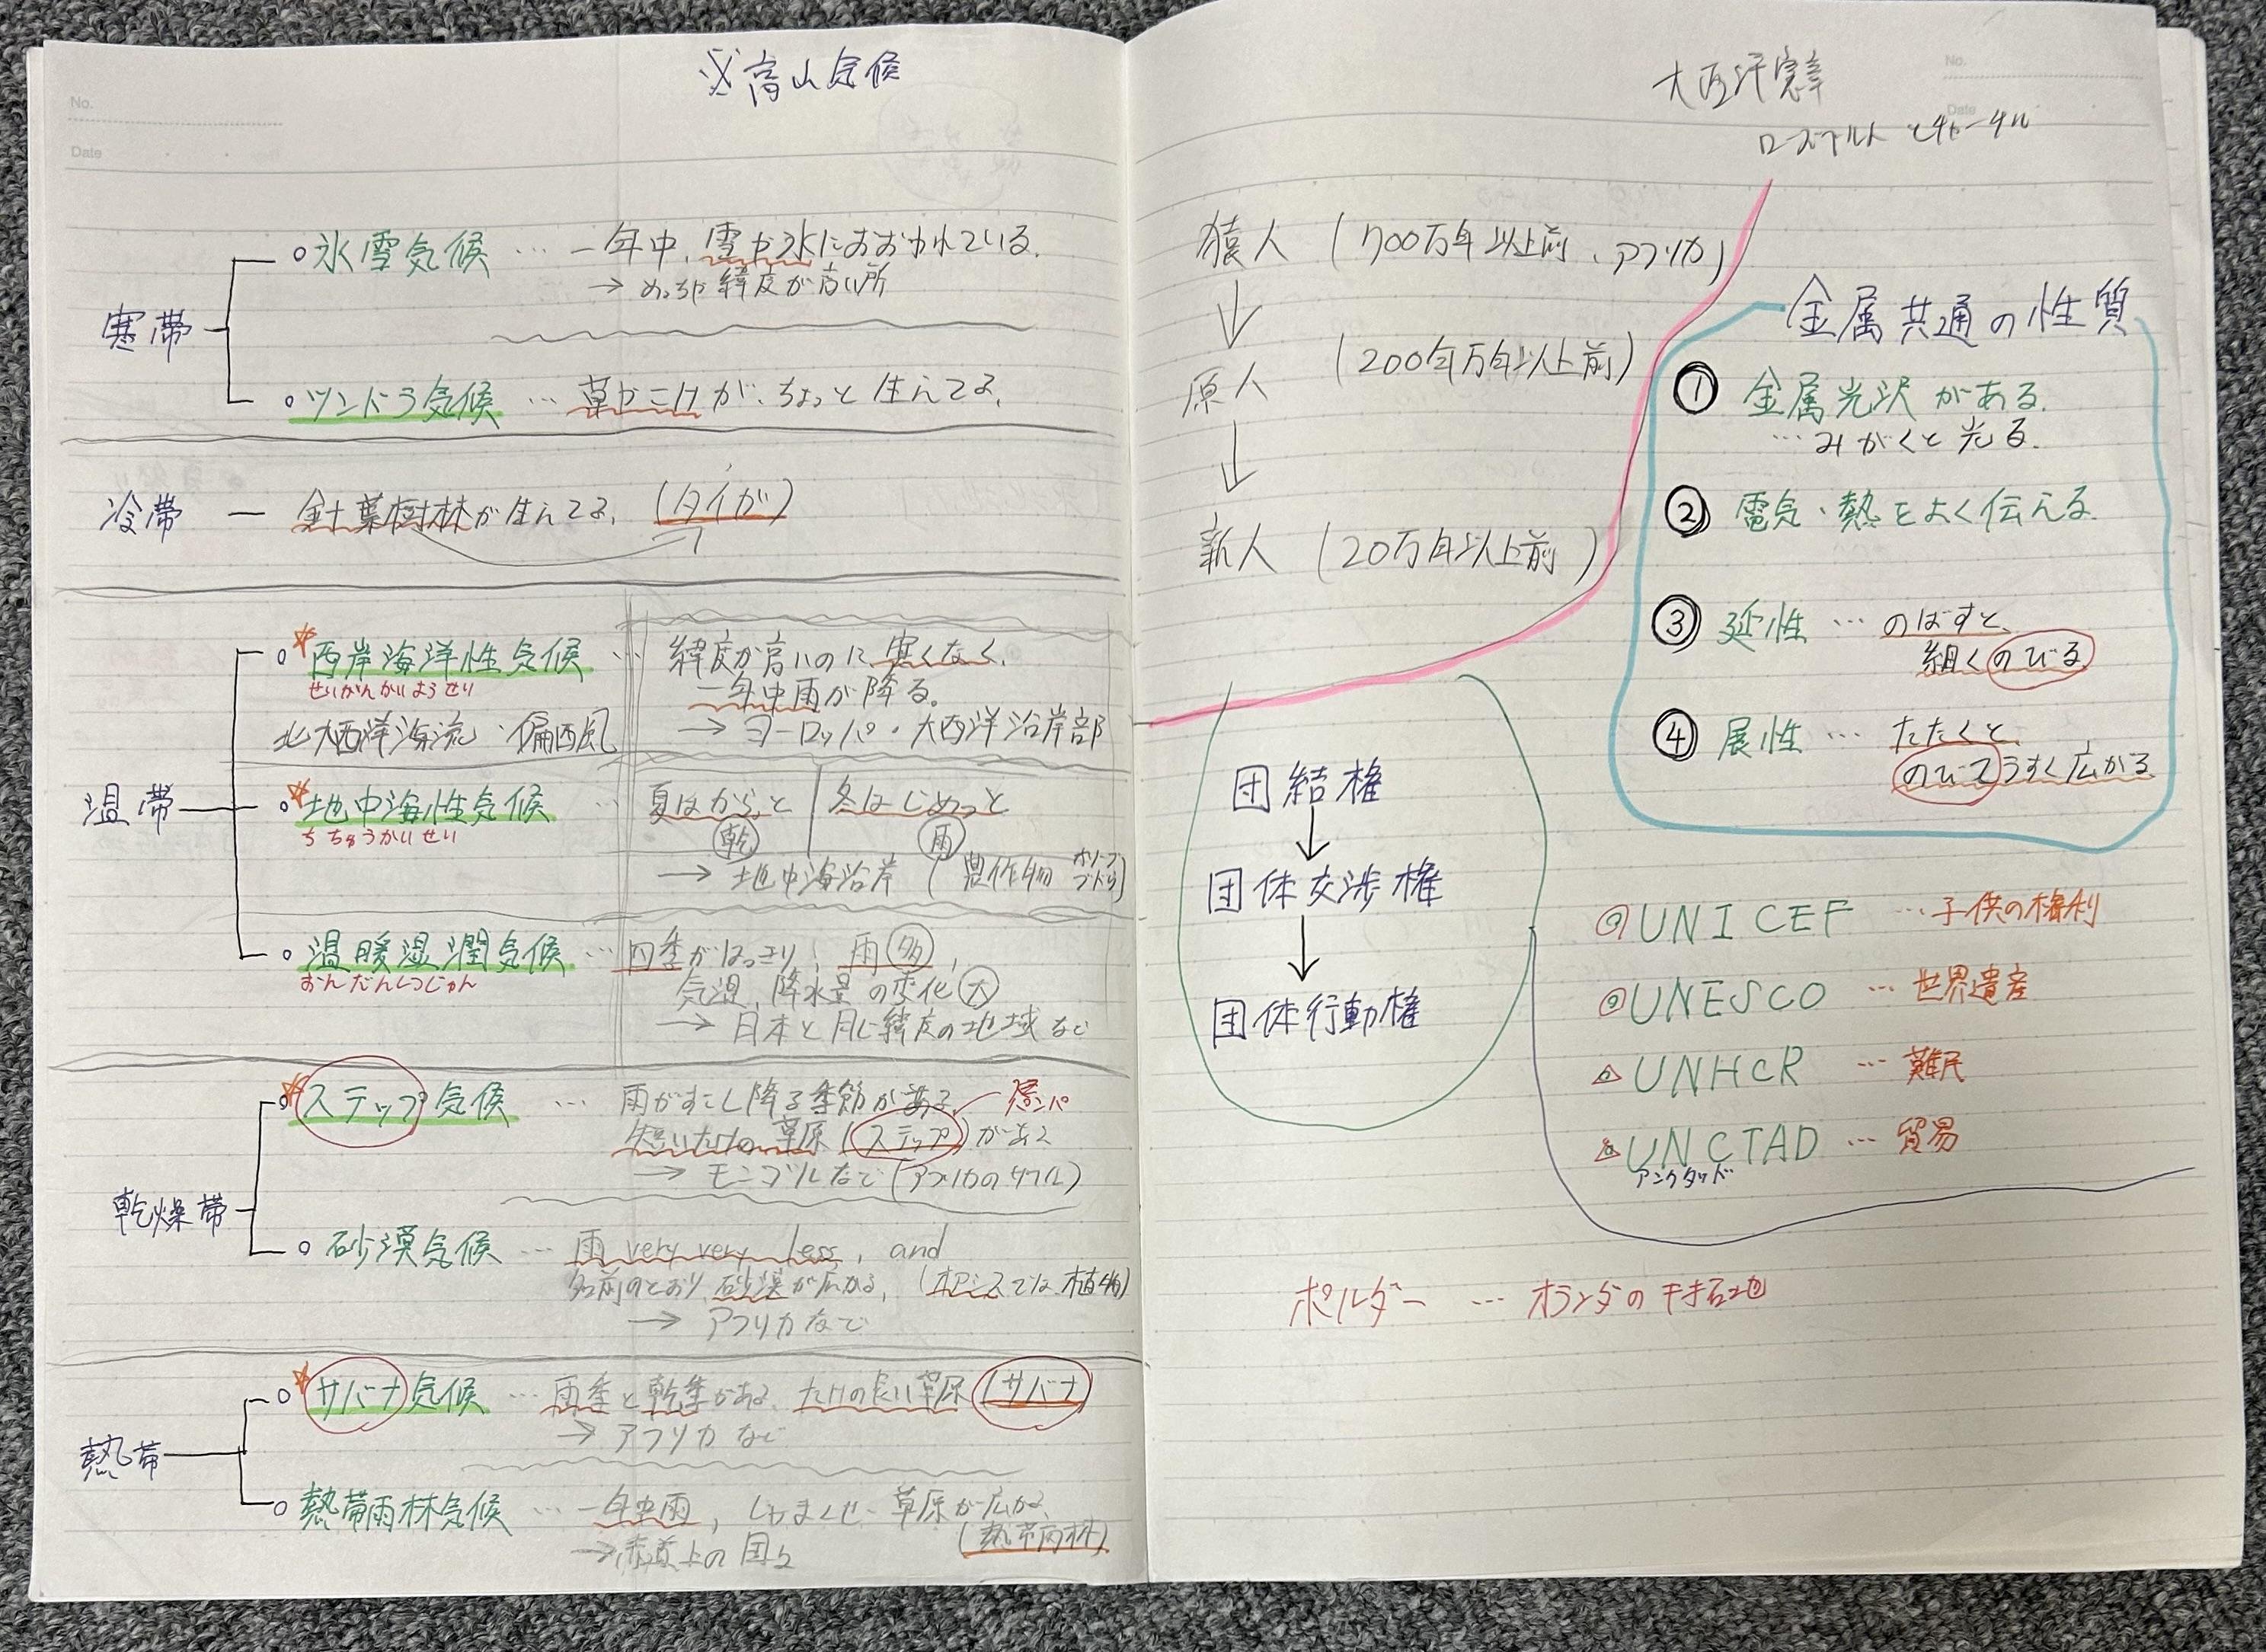 No.
Date
※高山気候
寒帯
氷雪気候 … 一年中、雪や氷におおわれている。
→ めっちゃ緯度が高い所
ツンドラ気候 … 草やこけが、ちょっと生えてる。
冷帯 ー 針葉樹林が生えてる。(タイガ)
温帯
☆西岸海洋性気候 … 緯度が高いのに寒くなく、
せいがんかいようせい
一年中雨が降る。
北大西洋海流・偏西風
→ ヨーロッパ・大西洋沿岸部
☆地中海性気候 … 夏はからっと 冬はじめっと
ちちゅうかいせい
乾 雨
→ 地中海沿岸 (農作物 オリーブ ブドウ)
温暖湿潤気候 … 四季がはっきり、雨多、
おんだんしつじゅん
気温、降水量の変化大
→ 日本と同じ緯度の地域など
乾燥帯
☆ステップ気候 … 雨がすこし降る季節がある。
短いたけの草原(ステップ)がある
→ モンゴルなど(アフリカのサヘル)
砂漠気候 … 雨 very very less, and
名前のとおり、砂漠が広がる。(オアシスでは、植物)
→ アフリカなど
熱帯
☆サバナ気候 … 雨季と乾季がある。たけの長い草原(サバナ)
→ アフリカなど
熱帯雨林気候 … 一年中雨, 草原が広がる
(熱帯雨林)
→赤道上の国々
No.
Date
大西洋憲章
ローズベルトとチャーチル
猿人 (700万年以上前、アフリカ)
↓
原人 (200年万年以上前)
↓
新人 (20万年以上前)
金属共通の性質
① 金属光沢がある。
… みがくと光る。
② 電気・熱をよく伝える
③ 延性 … のばすと、
細くのびる
④ 展性 … たたくと、
のびてうすく広がる
団結権
↓
団体交渉権
↓
団体行動権
UNICEF … 子供の権利
UNESCO … 世界遺産
UNHCR … 難民
UNCTAD … 貿易
アンクタッド
ポルダー … オランダの干拓地